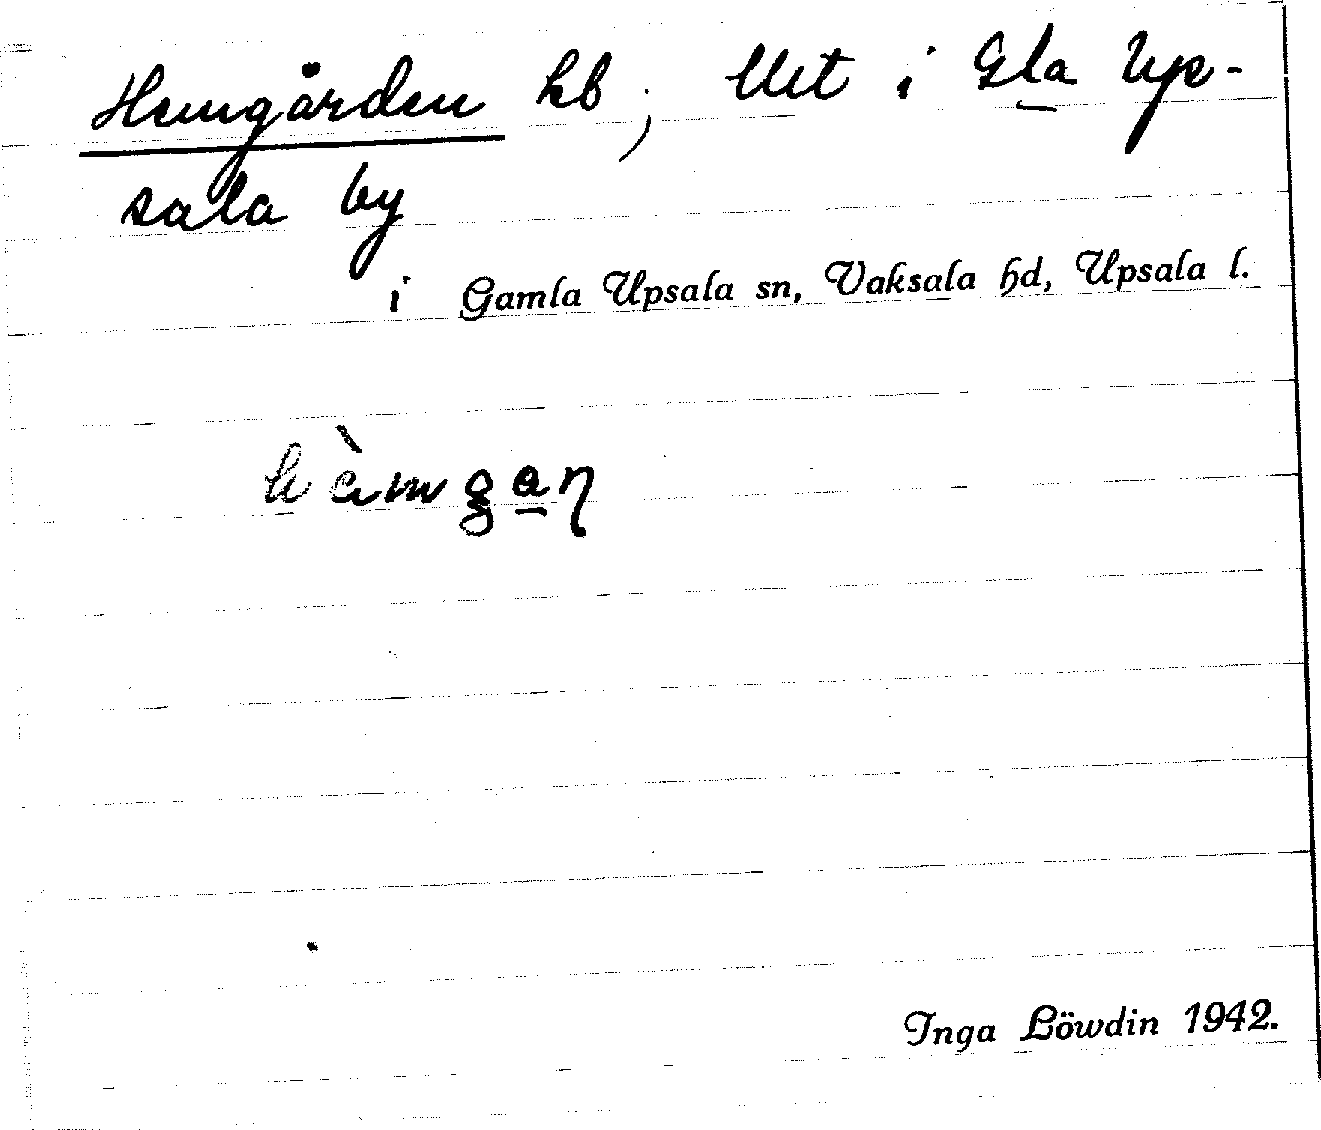 Hemgården hb, i Gla Up-
sala by
i Gamla Upsala sn, Vaksala hd, Upsala l.
hèmga̲ɳ
Inga Löwdin 1942.